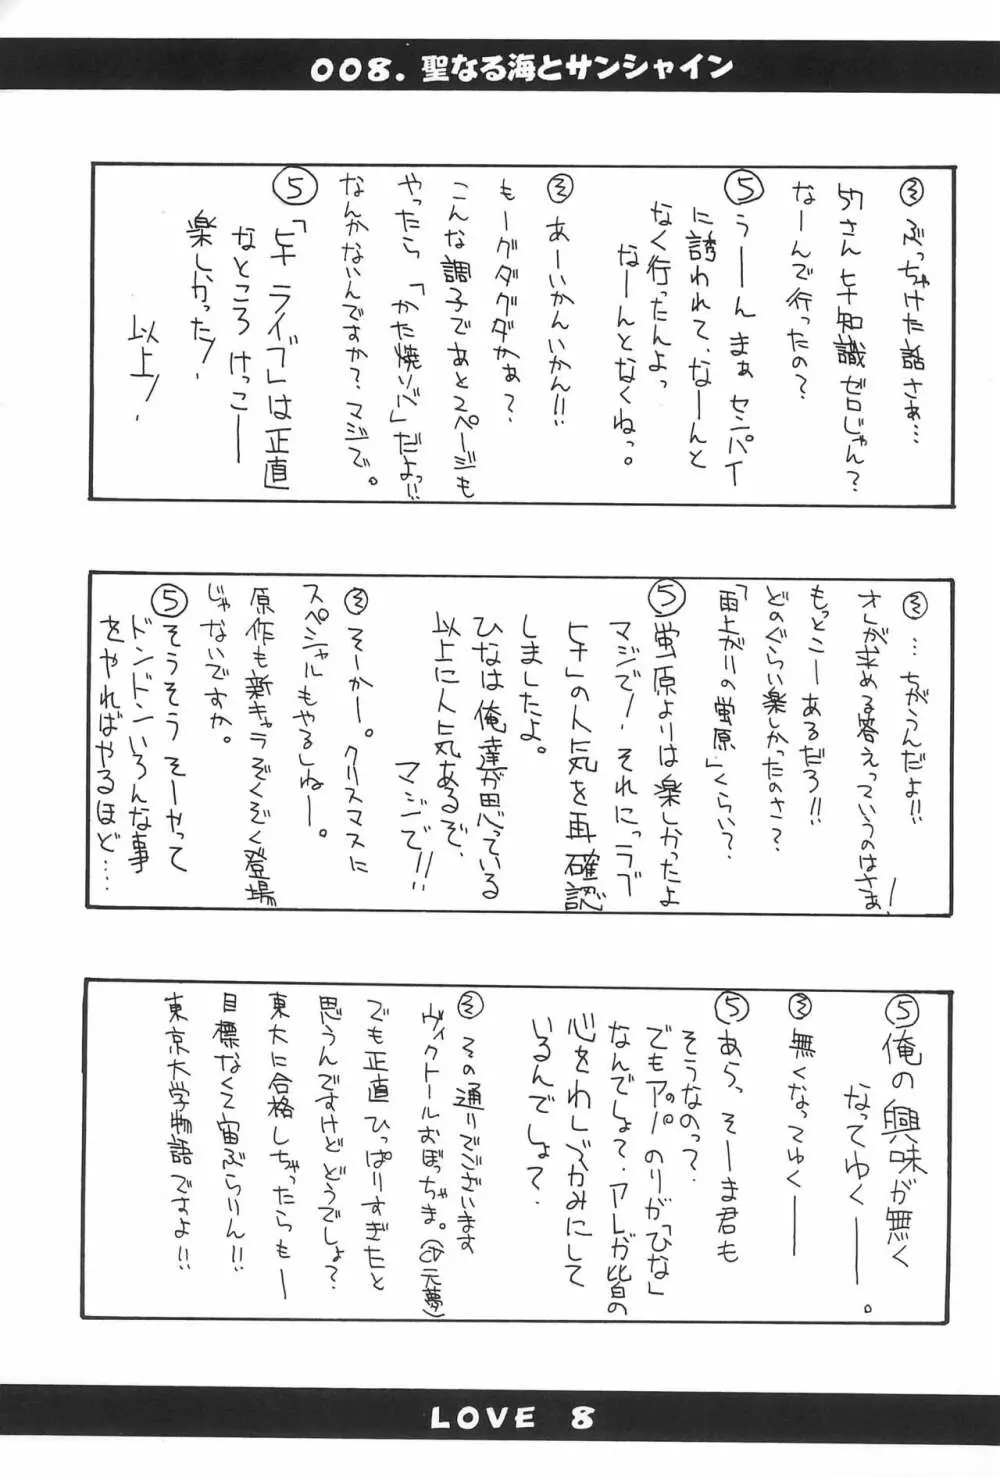 008. 聖なる海とサンシャイン
㋞ ぶっちゃけた話さぁ…
57さんヒナ知識ゼロじゃん？
なーんで行ったの？
⑤ うーんまぁセンパイ
に誘われて、なーんと
なく行ったんよっ
なーんとなくねっ。
㋞ あーいかんいかん!!
もーグダグダかぁ？
こんな調子であと2ページも
やったら「かた焼ソバ」だよっ!!
なんかないんですか？マジで。
⑤ 「ヒナライブ」は正直
なところけっこー
楽しかった！
以上！
㋞ …ちがうんだよ!!
オレが求める答えっていうのはさぁ！
もっとこーあるだろ!!
どのぐらい楽しかったのさ？
「雨上がりの蛍原」くらい？
⑤ 蛍原よりは楽しかったよ
マジで！それにっラブ
ヒナ」の人気を再確認
しましたよ。
ひなは俺達が思っている
以上に人気あるぞ、
マジで!!
㋞ そーかー。クリスマスに
スペシャルもやるしねー。
原作も新キャラぞくぞく登場
じゃないですか。
⑤ そうそうそーやって
ドンドンいろんな事
をやればやるほど…
⑤ 俺の興味が無く
なってゆく——。
㋞ 無くなってゆく——
⑤ あら、そーま君も
そうなのっ？
でもアパのりが「ひな」
なんでしょ？アレが皆の
心をわしづかみにして
いるんでしょ？
㋞ その通りでございます
ヴィクトールおぼっちゃま。（元夢）
でも正直ひっぱりすぎたと
思うんですけどどうでしょ？
東大に合格しちゃったらもー
目標なくて宙ぶらりん!!
東京大学物語ですよ!!
LOVE 8